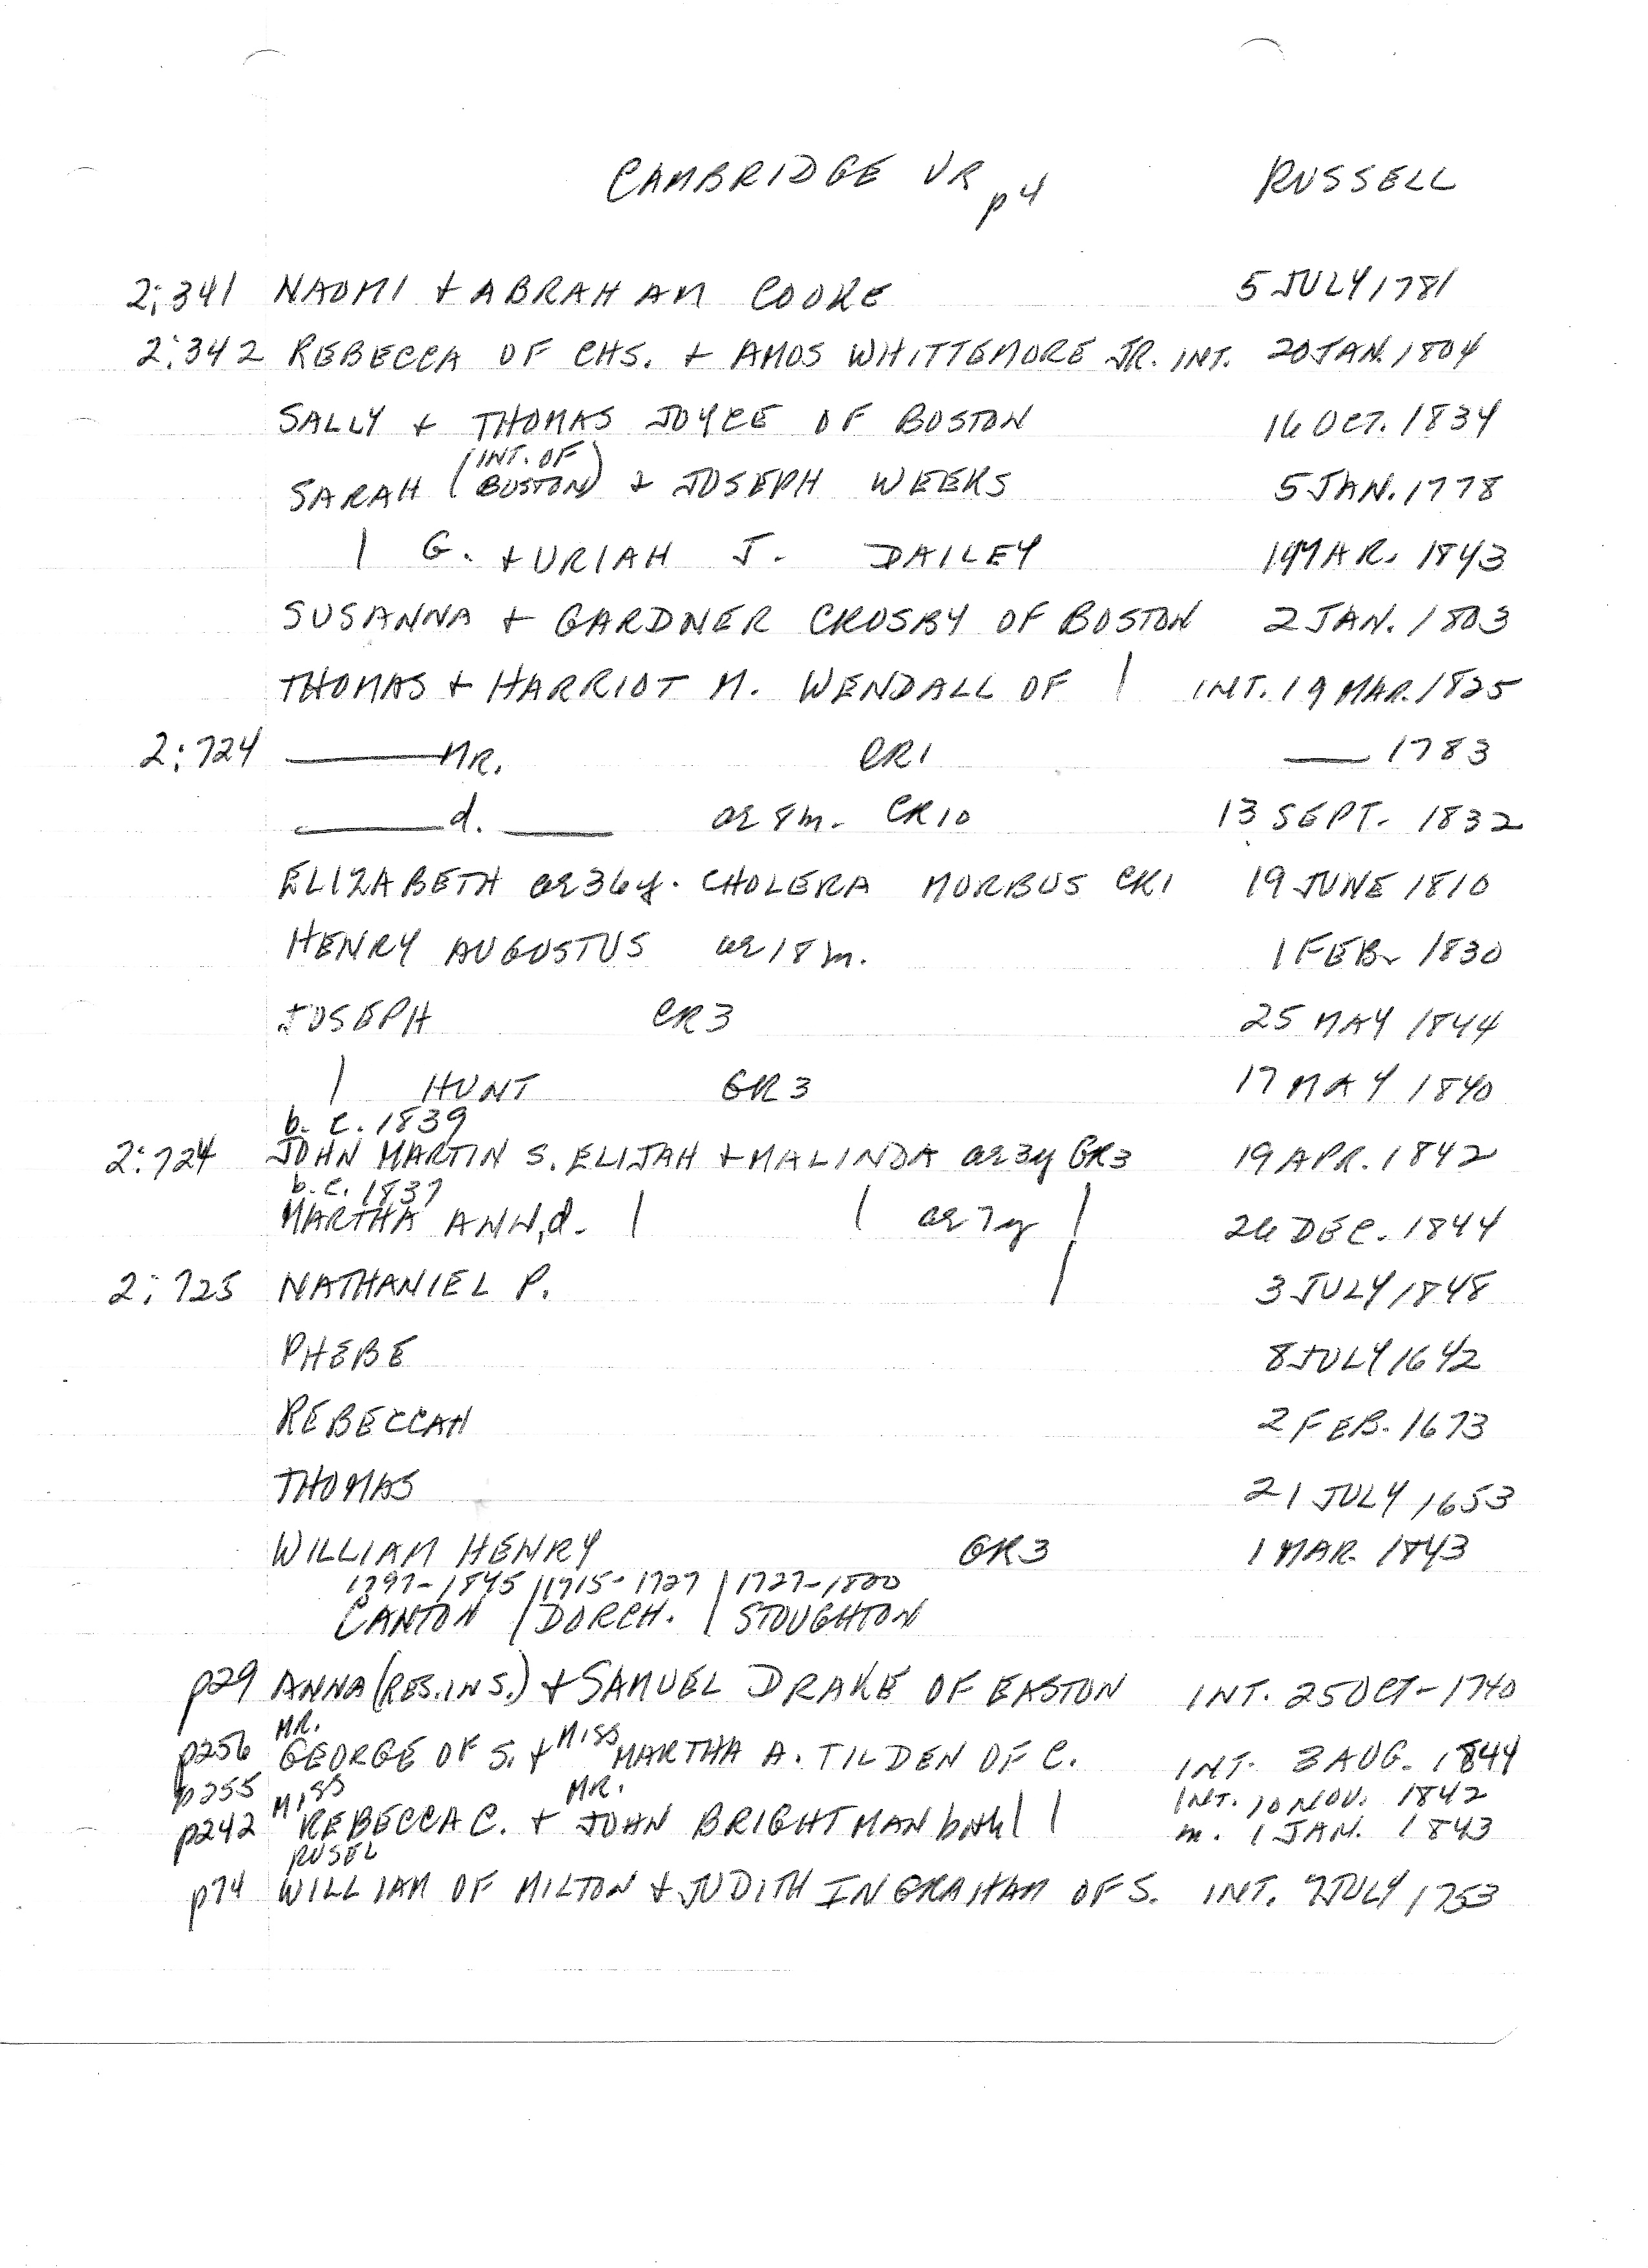 CAMBRIDGE VR p4 RUSSELL
2:341 NAOMI + ABRAHAM COOKE 5 JULY 1781
2:342 REBECCA OF CHS. + AMOS WHITTEMORE JR. INT. 20 JAN. 1804
SALLY + THOMAS JOYCE OF BOSTON 16 OCT. 1834
SARAH (INT. OF BOSTON) + JOSEPH WEEKS 5 JAN. 1778
| G. + URIAH J. DAILEY 1 MAR. 1843
SUSANNA + GARDNER CROSBY OF BOSTON 2 JAN. 1803
THOMAS + HARRIOT M. WENDALL OF | INT. 19 MAR. 1825
2:724 ——— MR. CR1 —— 1783
——— d. —— ae 8m. CR10 13 SEPT. 1832
ELIZABETH ae 36y. CHOLERA MORBUS CR1 19 JUNE 1810
HENRY AUGUSTUS ae 18m. 1 FEB. 1830
JOSEPH CR3 25 MAY 1844
| HUNT GR3 17 MAY 1840
b. c. 1839
2:724 JOHN MARTIN S. ELIJAH + MALINDA ae 3y GR3 19 APR. 1842
b. c. 1837
MARTHA ANN, d. | | ae 7y | 26 DEC. 1844
2:725 NATHANIEL P. | 3 JULY 1848
PHEBE 8 JULY 1642
REBECCAH 2 FEB. 1673
THOMAS 21 JULY 1653
WILLIAM HENRY GR3 1 MAR. 1843
1797-1845 | 1715-1727 | 1727-1800
CANTON | DORCH. | STOUGHTON
p29 ANNA (RES. IN S.) + SAMUEL DRAKE OF EASTON INT. 25 OCT. 1740
MR.
p256 GEORGE OF S. + MISS MARTHA A. TILDEN OF C. INT. 3 AUG. 1844
p255 MISS MR. INT. 10 NOV. 1842
p242 REBECCA C. + JOHN BRIGHTMAN both | | m. 1 JAN. 1843
RUSEL
p74 WILLIAM OF MILTON + JUDITH INGRAHAM OF S. INT. 7 JULY 1753